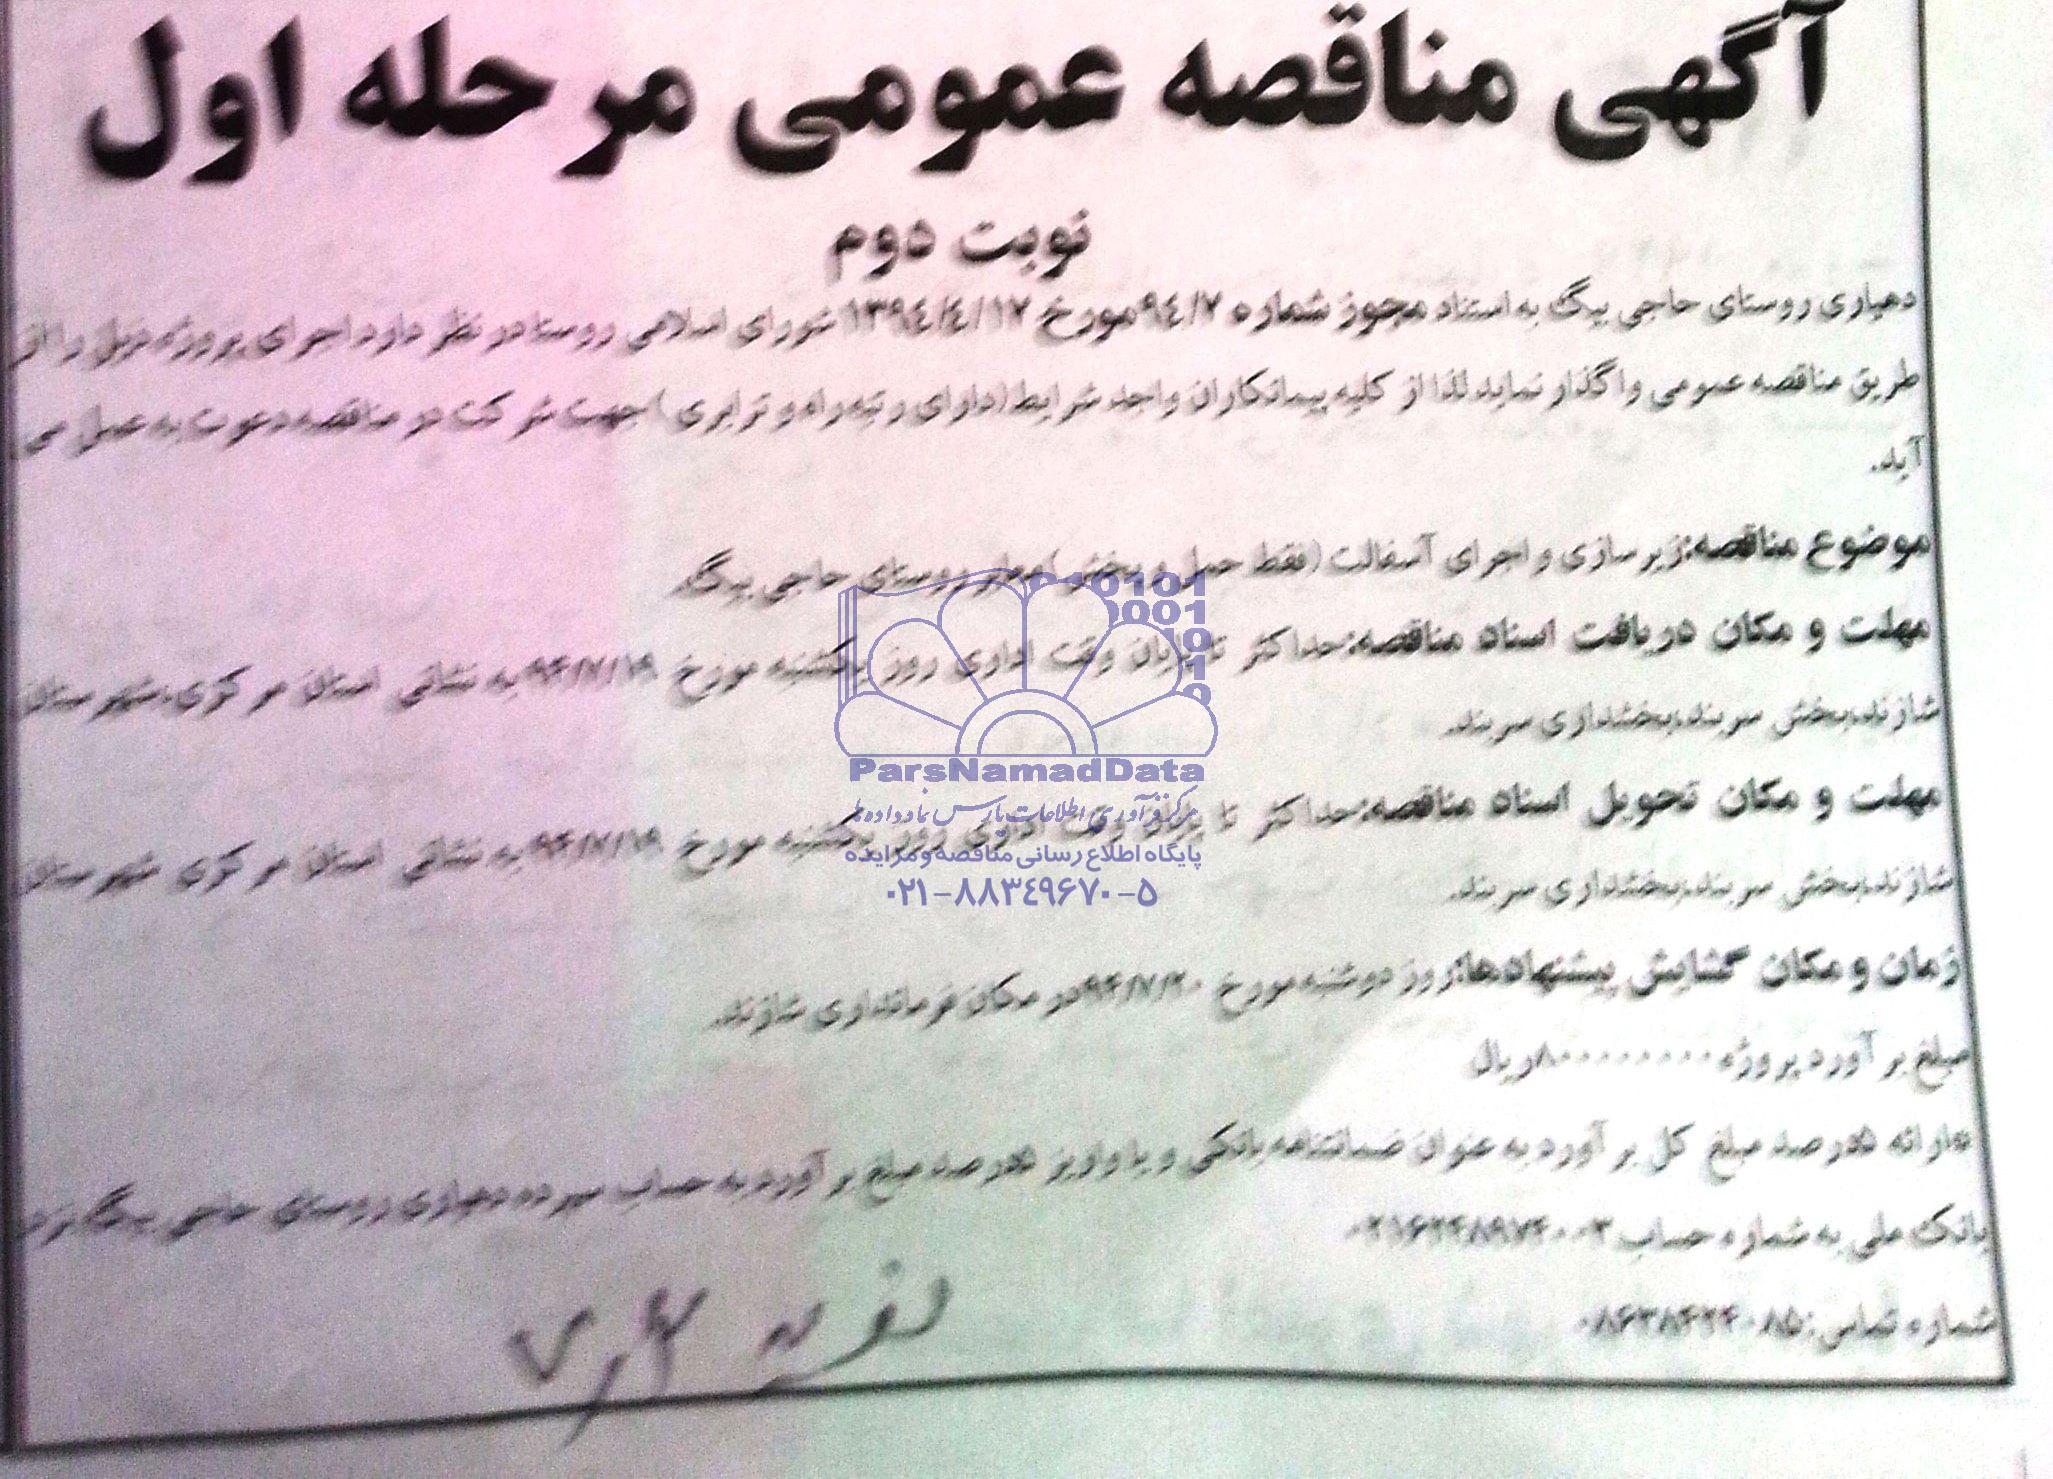 آگهی مناقصه عمومی مرحله اول
نوبت دوم
دهیاری روستای حاجی بیگ به استناد مجوز شماره ۹۴/۲ مورخ ۱۳۹۴/۴/۱۲ شورای اسلامی روستا در نظر دارد اجرای پروژه ذیل را از
طریق مناقصه عمومی واگذار نماید لذا از کلیه پیمانکاران واجد شرایط (دارای رتبه راه و ترابری) جهت شرکت در مناقصه دعوت به عمل می
آید.
موضوع مناقصه: زیرسازی و اجرای آسفالت (فقط حمل و پخش) معابر روستای حاجی بیگ.
مهلت و مکان دریافت اسناد مناقصه: حداکثر تا پایان وقت اداری روز یکشنبه مورخ ۹۴/۷/۱۹ به نشانی استان مرکزی، شهرستان
شازند، بخش سربند، بخشداری سربند.
مهلت و مکان تحویل اسناد مناقصه: حداکثر تا پایان وقت اداری روز یکشنبه مورخ ۹۴/۷/۱۹ به نشانی استان مرکزی شهرستان
شازند، بخش سربند، بخشداری سربند.
زمان و مکان گشایش پیشنهادها: روز دوشنبه مورخ ۹۴/۷/۲۰ در مکان فرمانداری شازند.
مبلغ برآورد پروژه ۸۰۰۰۰۰۰۰۰ ریال
ارائه ۵ درصد مبلغ کل برآورد به عنوان ضمانتنامه بانکی و یا واریز ۵ درصد مبلغ برآورد به حساب سپرده دهیاری روستای حاجی بیگ نزد
بانک ملی به شماره حساب
شماره تماس:
ParsNamadData
مرکز فرآوری اطلاعات پارس نماد داده ها
پایگاه اطلاع رسانی مناقصه و مزایده
۰۲۱-۸۸۳۴۹۶۷۰-۵